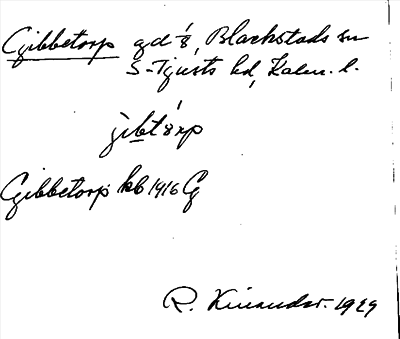 Gibbetorp gd ⅛, Blackstads sn
S-Tjusts hd, Kalm. l.
jìbtórp
Gibbetorp kb 1916 G
R. Kinander. 1929